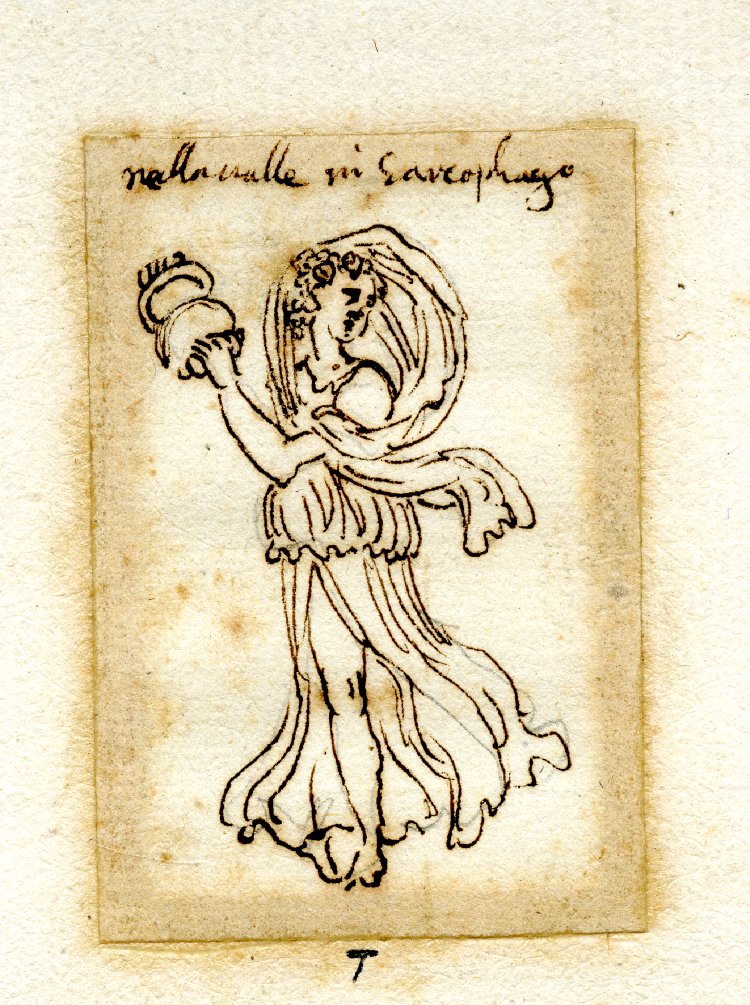 nella valle in Sarcophago
T